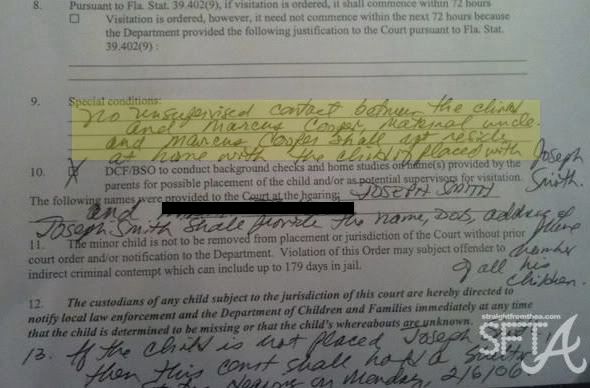 8. Pursuant to Fla. Stat. 39.402(9), if visitation is ordered, it shall commence within 72 hours
Visitation is ordered, however, it need not commence within the next 72 hours because
the Department provided the following justification to the Court pursuant to Fla. Stat.
39.402(9) :
9. Special conditions:
no unsupervised contact between the child
and Marcus Cooper, maternal uncle
and Marcus Cooper shall not reside
at home with the child if placed with Joseph Smith.
10. X DCF/BSO to conduct background checks and home studies on name(s) provided by the
parents for possible placement of the child and/or as potential supervisors for visitation.
The following names were provided to the Court at the hearing: JOSEPH SMITH
and
Joseph Smith shall provide the name, DOB, address & phone number of all his children.
11. The minor child is not to be removed from placement or jurisdiction of the Court without prior
court order and/or notification to the Department. Violation of this Order may subject offender to
indirect criminal contempt which can include up to 179 days in jail.
12. The custodians of any child subject to the jurisdiction of this court are hereby directed to
notify local law enforcement and the Department of Children and Families immediately at any time
that the child is determined to be missing or that the child's whereabouts are unknown.
13. If the child is not placed Joseph
then this court shall hold a
Hearing on Monday 2/6/06
straightfromthea.com
SFTA